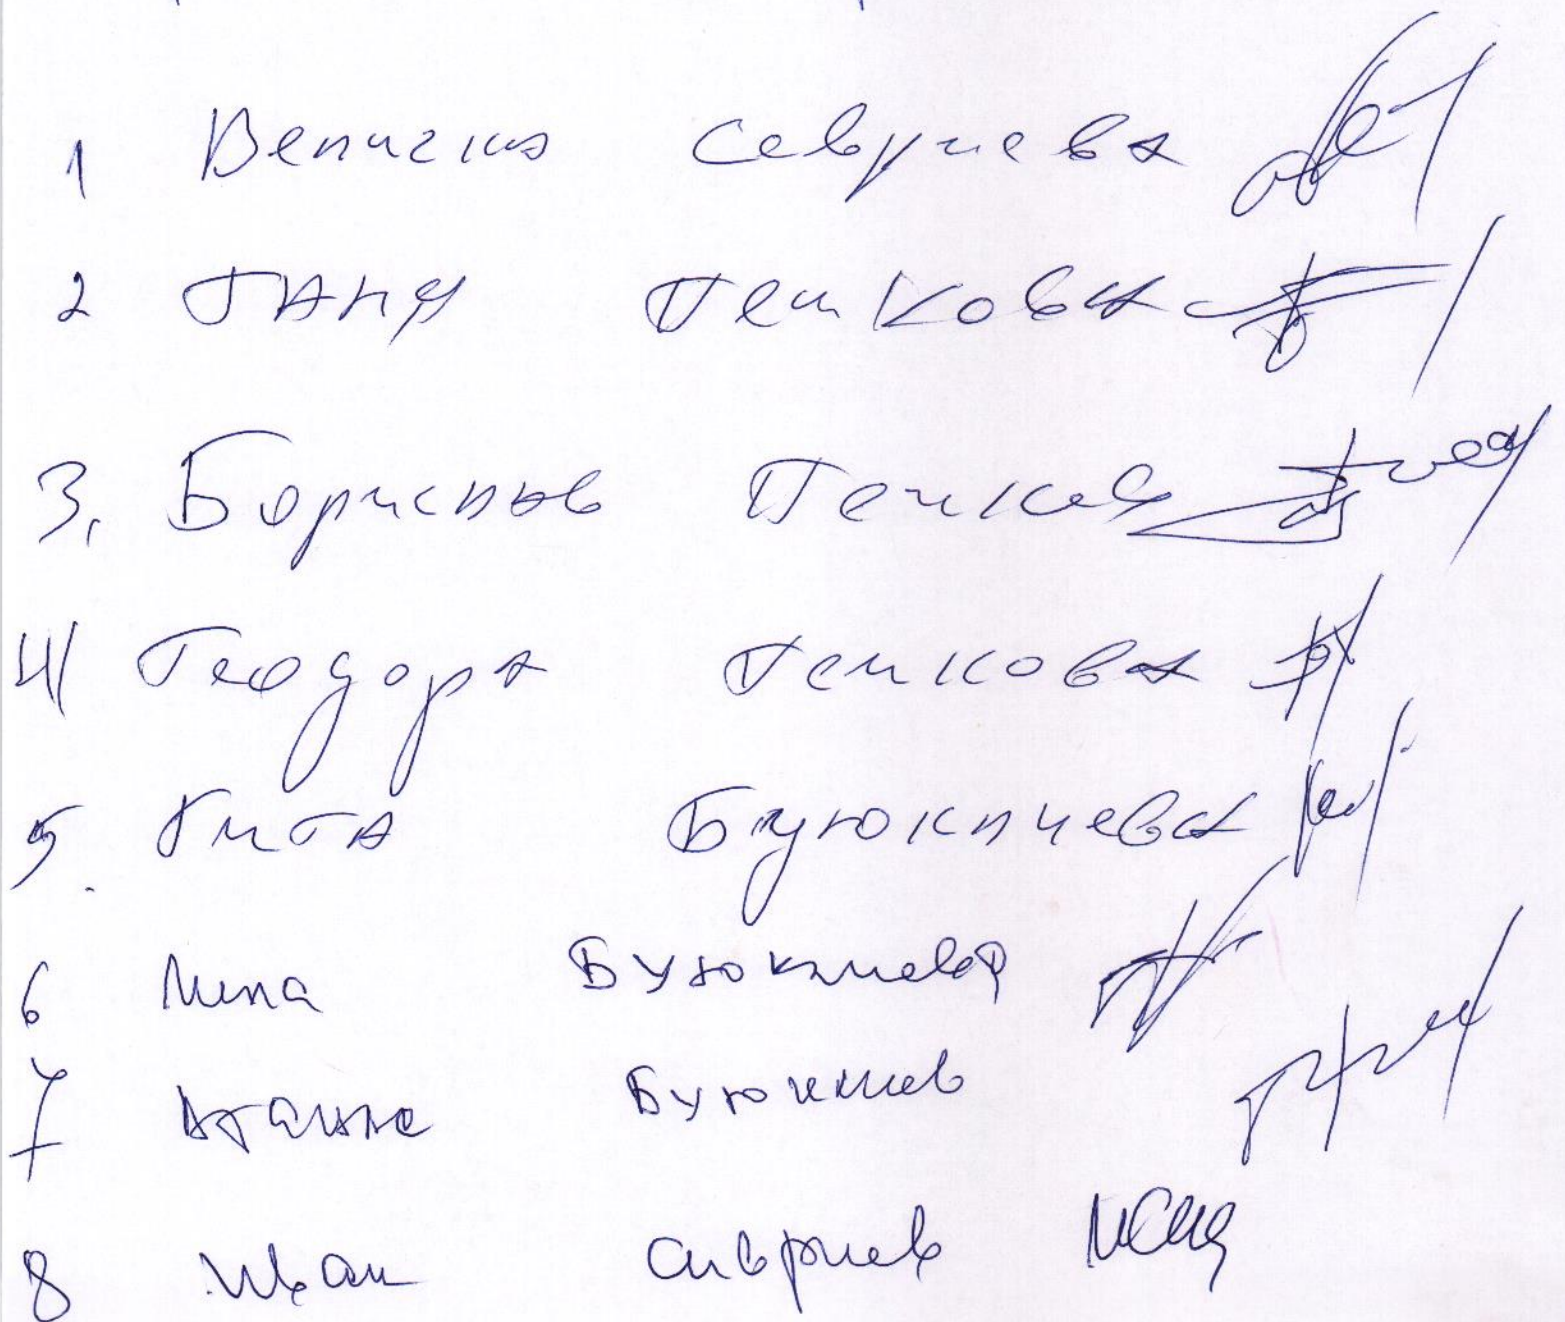 1 Величка Севриева
2 Таня Пейкова
3. Борислав Пейков
4/ Теодора Пейкова
5. Гита Буюклиева
6 Буюклиева
7 Атанас Буюклиев
8 Иван Сивриев